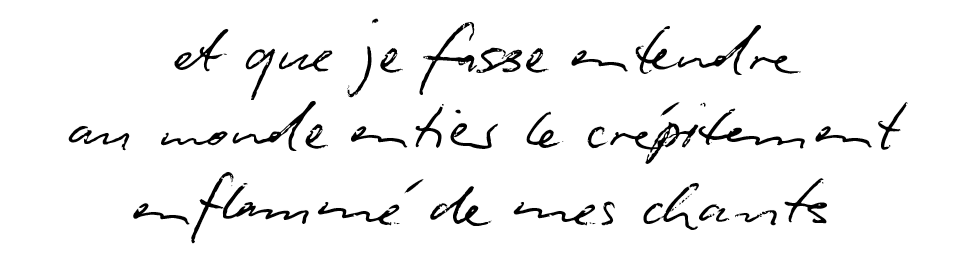 et que je fasse entendre
au monde entier le crépitement
enflammé de mes chants